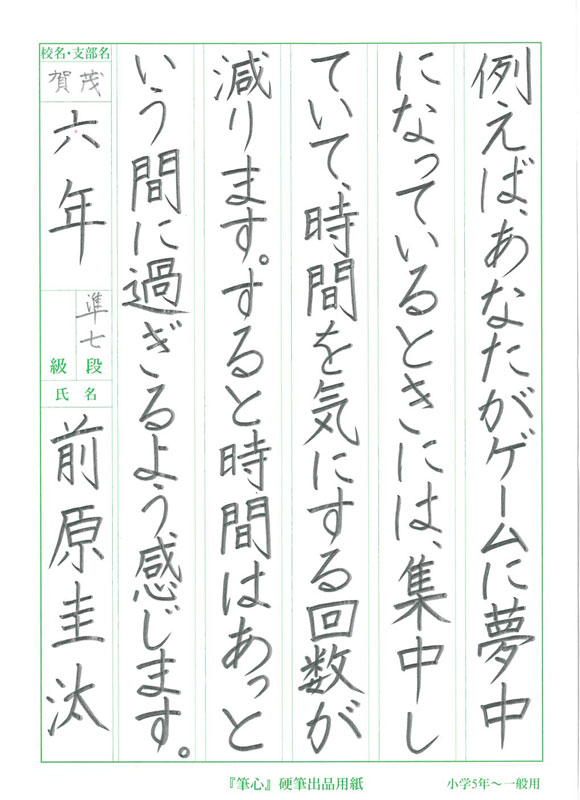 例えば、あなたがゲームに夢中
になっているときには、集中し
ていて、時間を気にする回数が
減ります。すると時間はあっと
いう間に過ぎるよう感じます。
校名・支部名
賀茂
六年
準七
級段
氏名
前原圭汰
『筆心』硬筆出品用紙
小学5年〜一般用